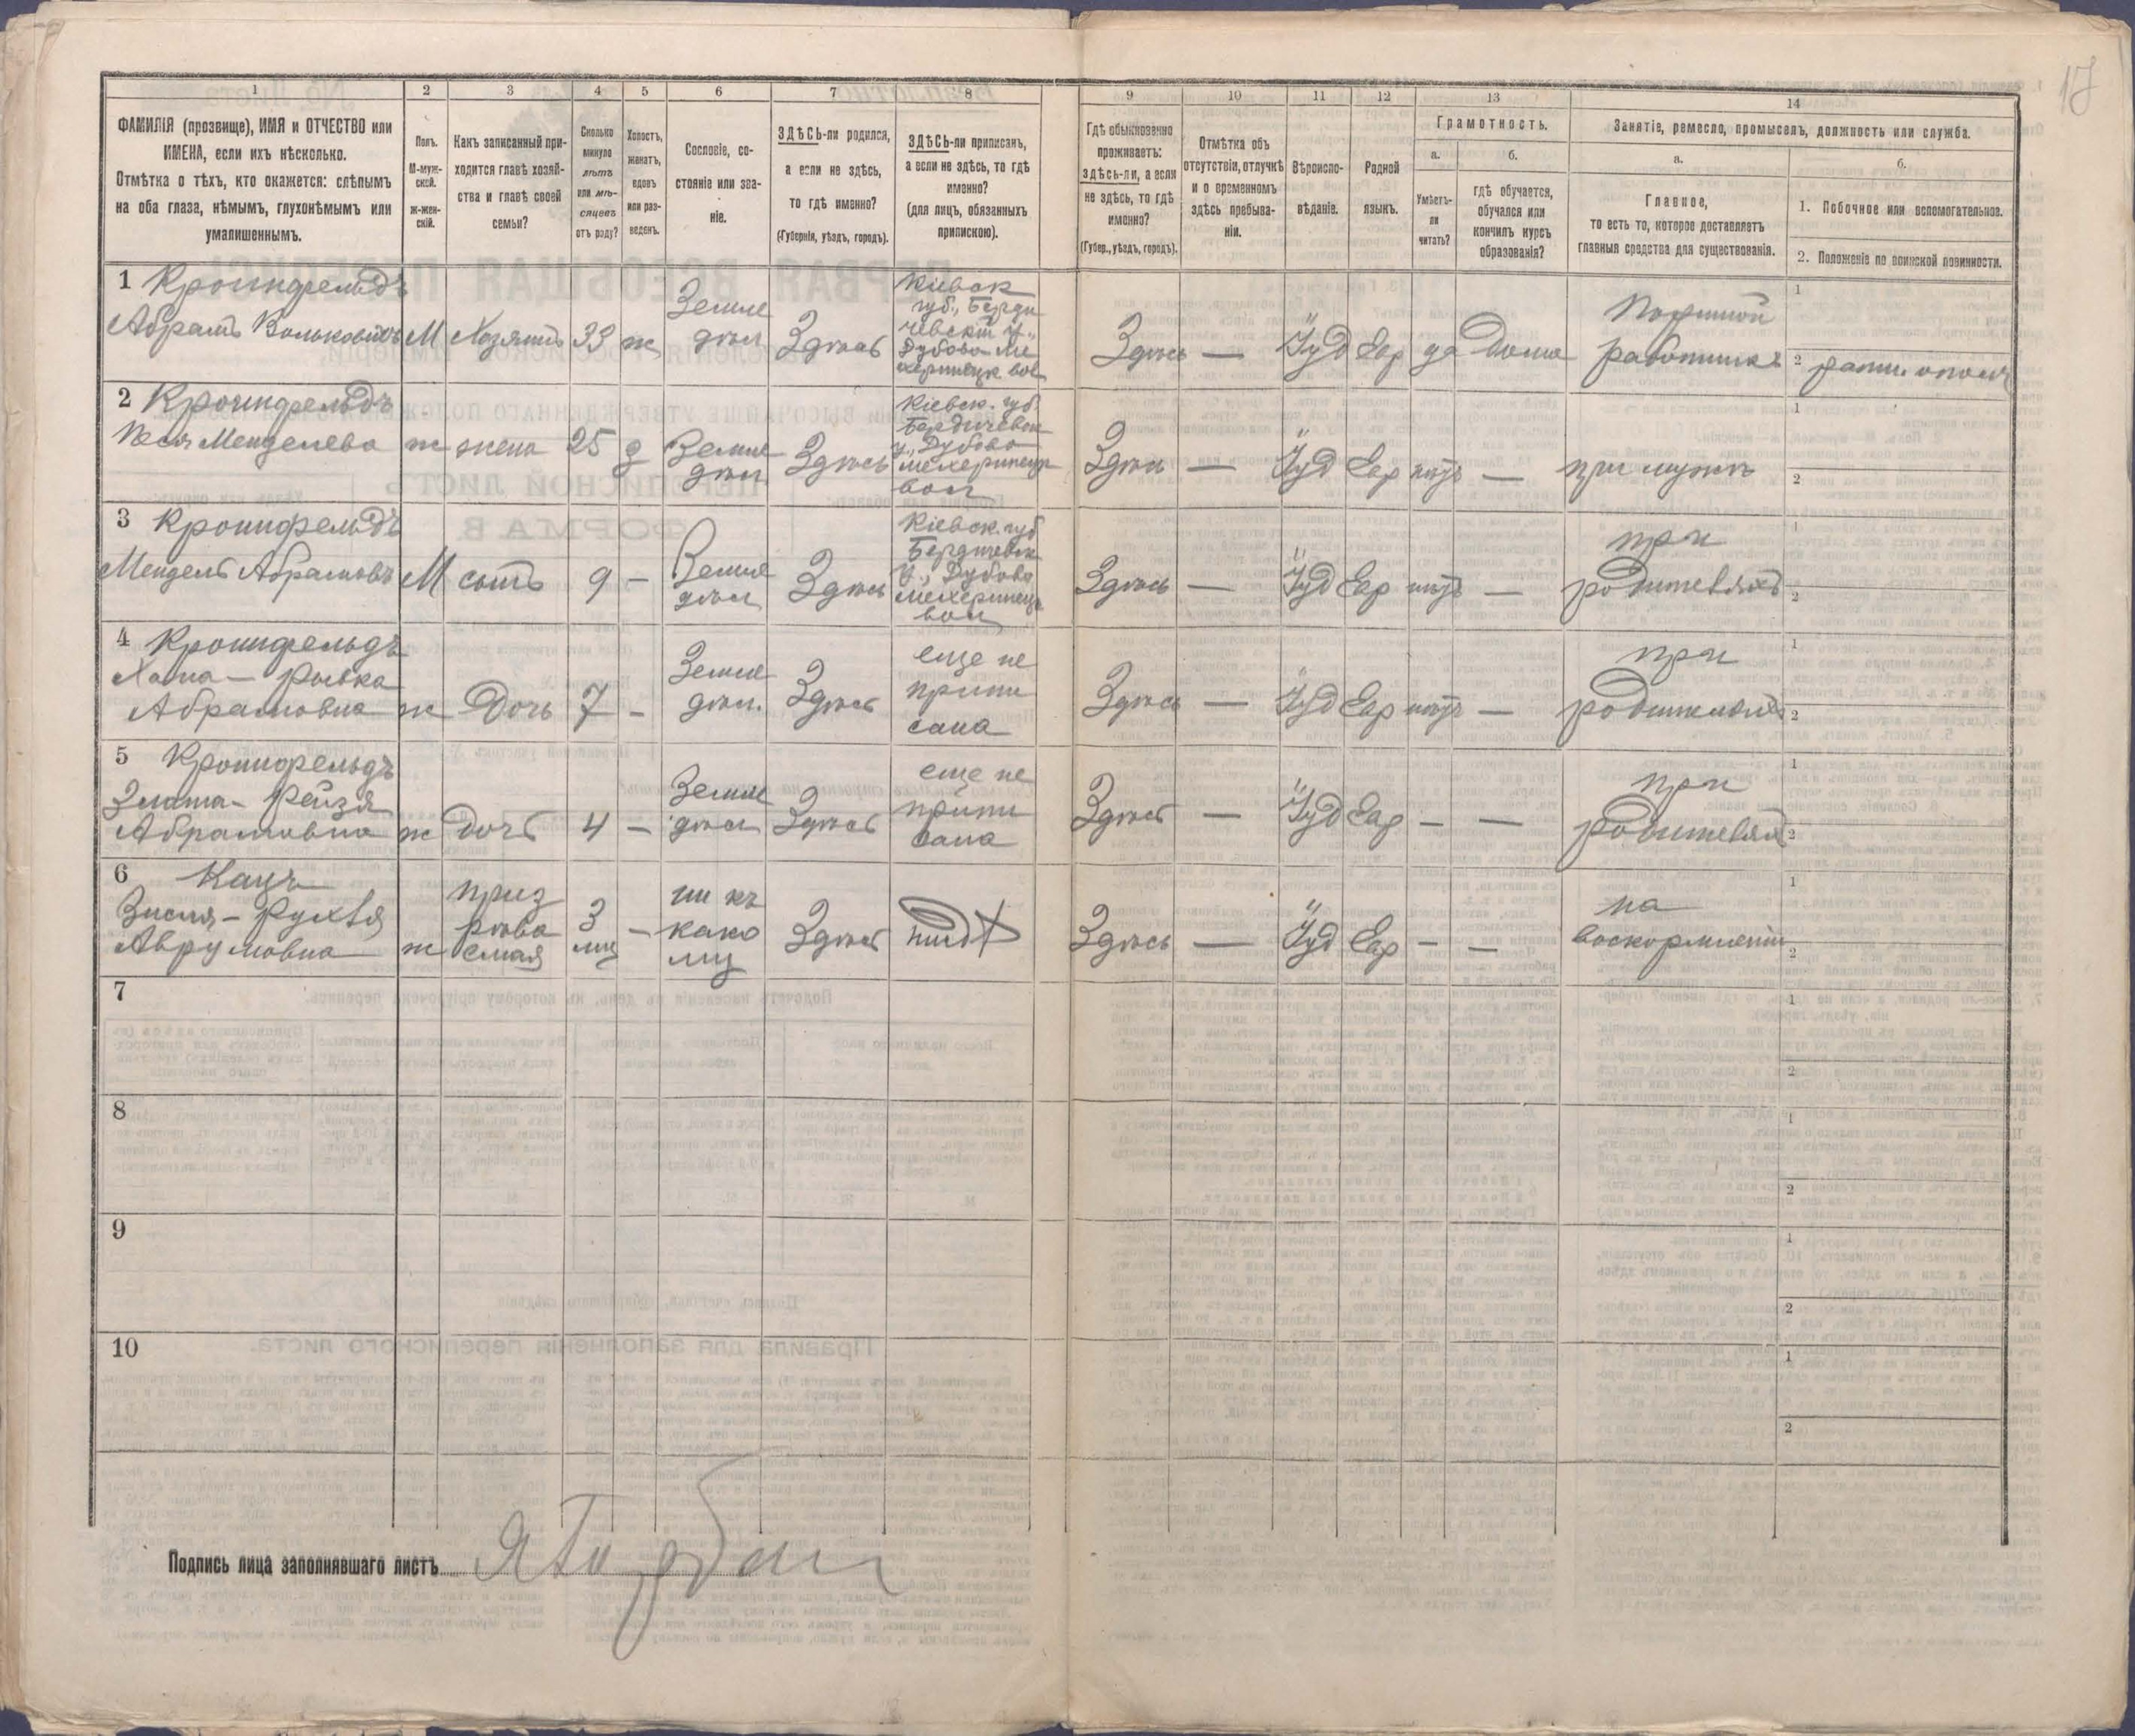 17
1
2
3
4
5
6
7
8
9
10
11
12
13
14
ФАМИЛІЯ (прозвище), ИМЯ и ОТЧЕСТВО или
ИМЕНА, если ихъ нѣсколько.
Отмѣтка о тѣхъ, кто окажется: слѣпымъ
на оба глаза, нѣмымъ, глухонѣмымъ или
умалишеннымъ.
Полъ.
М-муж-
ской.
ж-жен-
скій.
Какъ записанный при-
ходится главѣ хозяй-
ства и главѣ своей
семьи?
Сколько
минуло
лѣтъ
или мѣ-
сяцевъ
отъ роду?
Холостъ,
женатъ,
вдовъ
или раз-
веденъ.
Сословіе, со-
стояніе или зва-
ніе.
ЗДѢСЬ-ли родился,
а если не здѣсь,
то гдѣ именно?
(Губернія, уѣздъ, городъ).
ЗДѢСЬ-ли приписанъ,
а если не здѣсь, то гдѣ
именно?
(для лицъ, обязанныхъ
припискою).
Гдѣ обыкновенно
проживаетъ:
здѣсь-ли, а если
не здѣсь, то гдѣ
именно?
(Губер., уѣздъ, городъ).
Отмѣтка объ
отсутствіи, отлучкѣ
и о временномъ
здѣсь пребыва-
ніи.
Вѣроиспо-
вѣданіе.
Родной
языкъ.
Грамотность.
а.
Умѣетъ-
ли
читать?
б.
гдѣ обучается,
обучался или
кончилъ курсъ
образованія?
Занятіе, ремесло, промыселъ, должность или служба.
а.
Главное,
то есть то, которое доставляетъ
главныя средства для существованія.
б.
1. Побочное или вспомогательное.
2. Положеніе по воинской повинности.
1 Кронфельдъ
Абрамъ Вольковичъ М Хозяинъ 33 ж Земле
дѣл Здѣсь Кіевск
губ., Берди
чевск у.,
Дубово Ме
херинецк вол
Здѣсь — Іуд Евр да дома
работникъ
1
2 ратн. ополч
2 Кронфельдъ
Песя Менделева ж жена 25 з Земле
дѣл Здѣсь Кіевск. губ.
Бердичевск
у., Дубово
Мехеринецк
вол
Здѣсь — Іуд Евр нѣтъ — при мужѣ
1
2
3 Кронфельдъ
Мендель Абрамовъ М сынъ 9 — Земле
дѣл Здѣсь Кіевск. губ
Бердичевск
у., Дубово
Мехеринецк
вол
Здѣсь — Іуд Евр нѣтъ — при
родителяхъ
1
2
4 Кронфельдъ
Хана — Рывка
Абрамовна ж Дочь 7 — Земле
дѣл. Здѣсь еще не
припи
сана
Здѣсь — Іуд Евр нѣтъ — при
родителяхъ
1
2
5 Кронфельдъ
Злата — Рейзя
Абрамовна ж Дочь 4 — Земле
дѣл Здѣсь еще не
припи
сана
Здѣсь — Іуд Евр — — при
родителях
1
2
6 Кацъ
Зисля — Рухля
Аврумовна ж приз
рѣва
емая 3
мц — ни къ
како
му Здѣсь
Здѣсь — Іуд Евр — — на
воскормленіи
1
2
7
1
2
8
1
2
9
1
2
10
1
2
Подпись лица заполнявшаго листъ